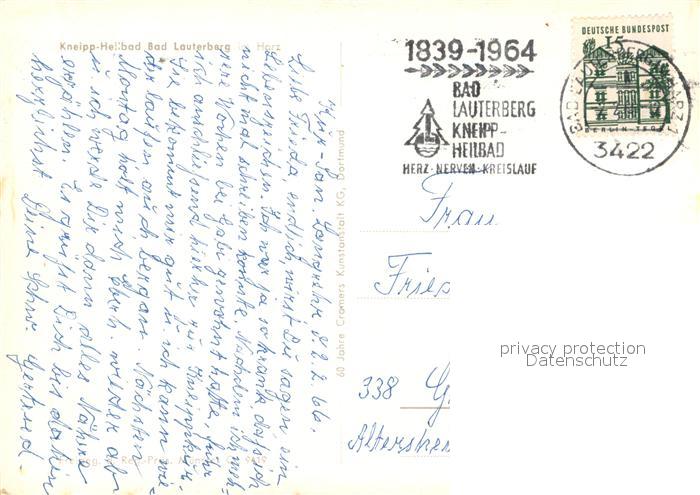 Kneipp-Heilbad Bad Lauterberg Harz
1839-1964
BAD
LAUTERBERG
KNEIPP-
HEILBAD
HERZ·NERVEN·KREISLAUF
DEUTSCHE BUNDESPOST
15
3422
Liebe Frieda, endlich wirst Du sagen, ein
Lebenszeichen. Ich war ja so krank, daß ich
nicht mal schreiben konnte. Nachdem ich
Wochen bei Gabi gewohnt hatte, fuhr
ich anschließend hierher zur Kneippkur.
Sie bekommt mir gut u. ich kann wie-
der laufen auch bergan. Nächsten
Montag holt mich wieder ab
u. ich werde Dir dann alles Nähere
erzählen. Es grüßt Dich bis dahin
herzlichst Deine Schw. Gertrud
60 Jahre Cramers Kunstanstalt KG, Dortmund
Frau
338 G
privacy protection
Datenschutz